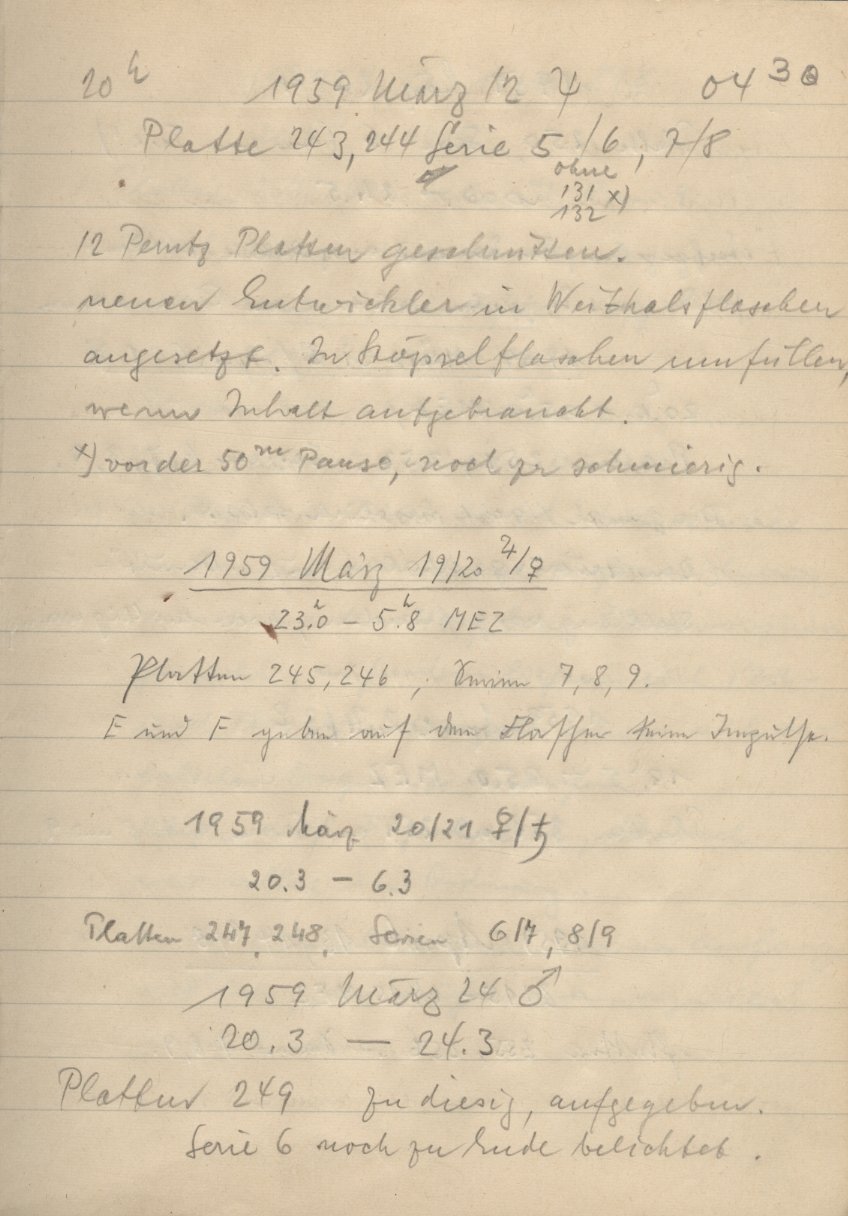 20ʰ 1959 März 12 ♃ 04 30
Platte 243, 244 Serie 5/6, 7/8
ohne
131 x)
132
12 Perutz Platten geschnitten.
neuen Entwickler in Weithalsflaschen
angesetzt. In Stöpselflaschen umfüllen,
wenn Inhalt aufgebraucht.
x) vor der 50ᵐ Pause, noch zu schmierig.
1959 März 19/20 ♃/♀
23.ʰ0 – 5.ʰ8 MEZ
Platten 245, 246, Serien 7, 8, 9.
E und F geben auf dem Flasher keine Impulse.
1959 März 20/21 ♀/♄
20.3 – 6.3
Platten 247, 248, Serien 6/7, 8/9
1959 März 24 ♂
20.3 — 24.3
Platten 249 zu diesig, aufgegeben.
Serie 6 noch zu Ende belichtet.